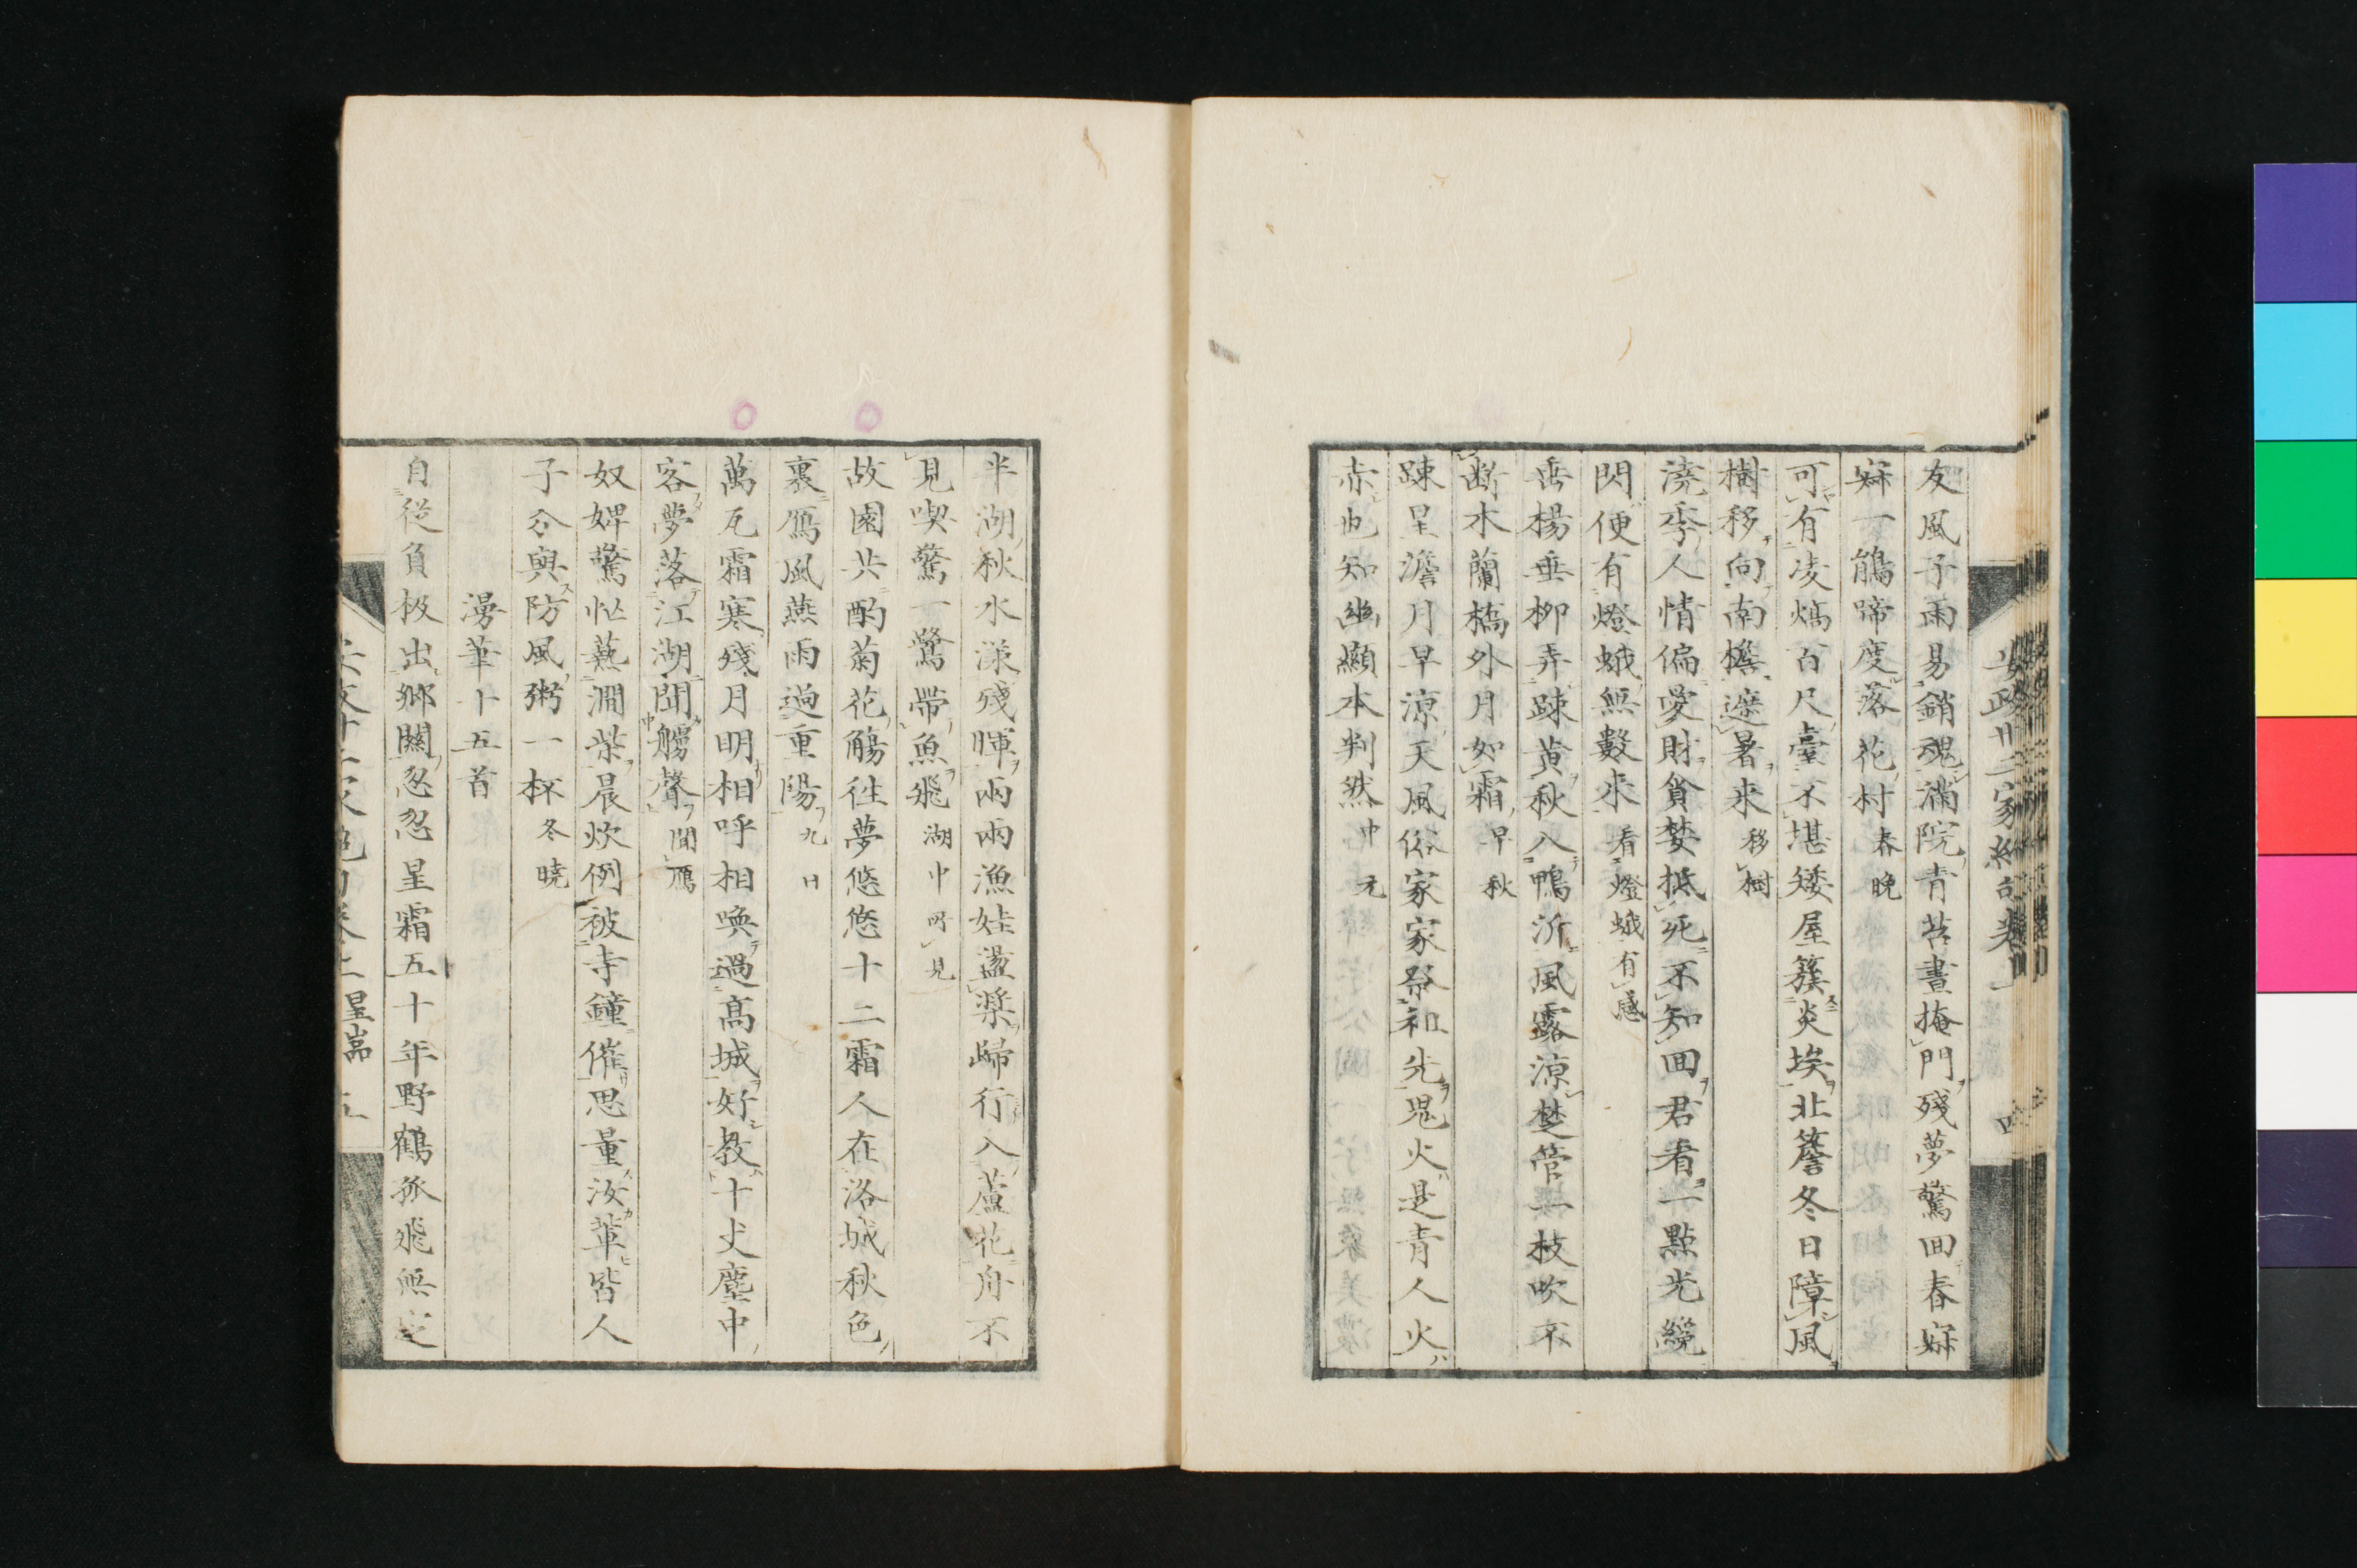 友風子雨易銷魂滿院青苔晝掩門殘夢驚回春寂
寂一鵑啼度落花村 春晚
可有凌熇百尺臺不堪矮屋簇炎埃北簷冬日障風
樹移向南檐遮暑來 移樹
澆季人情偏愛財貪婪抵死不知回君看一點光纔
閃便有燈蛾無數來 看燈蛾有感
垂楊垂柳弄疎黄秋入鴨沂風露涼楚管一枝吹不
断木蘭橋外月如霜 早秋
踈星澹月早涼天風俗家家祭祖先鬼火是青人火
赤也知幽顯本判然 中元
半湖秋水漾殘暉兩兩漁娃盪槳歸行入蘆花舟不
見喫驚一鷺帶魚飛 湖中所見
故園共酌菊花觴往夢悠悠十二霜人在洛城秋色
裏鴈風燕雨過重陽 九日
萬瓦霜寒殘月明相呼相喚過高城好教十丈塵中
客夢落江湖聞觸聲 聞鴈
奴婢驚忙爇澗柴晨炊例被寺鐘催思量汝輩皆人
子分與防風粥一杯 冬曉
漫筆十五首
自從負极出鄉關忽忽星霜五十年野鶴孤飛無定